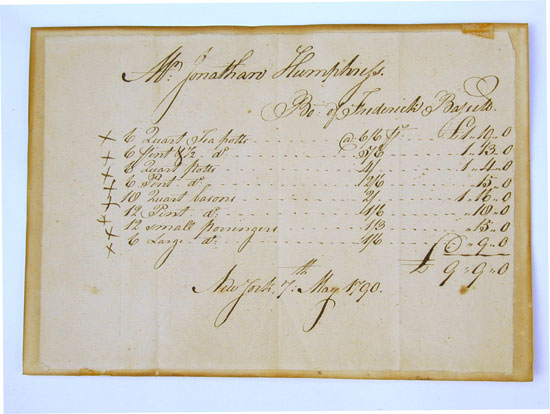 Mr. Jonathan Humphress.
Bo. of Frederick Bassett
x 6 Quart Tea potts @ 6/6 pr £1..19..0
x 6 Pint & 1/2 do. 5/6 1..13..0
x 6 Quart potts 4/ 1..4..0
x 6 Pint do. 2/6 ..15..0
x 18 Quart basons 2/ 1..16..0
x 12 Pint do. 1/6 ..18..0
x 12 small porrengers 1/3 ..15..0
x 6 Large do. 1/6 0..9..0
£ 9..9..0
New York. 7th May 1790.